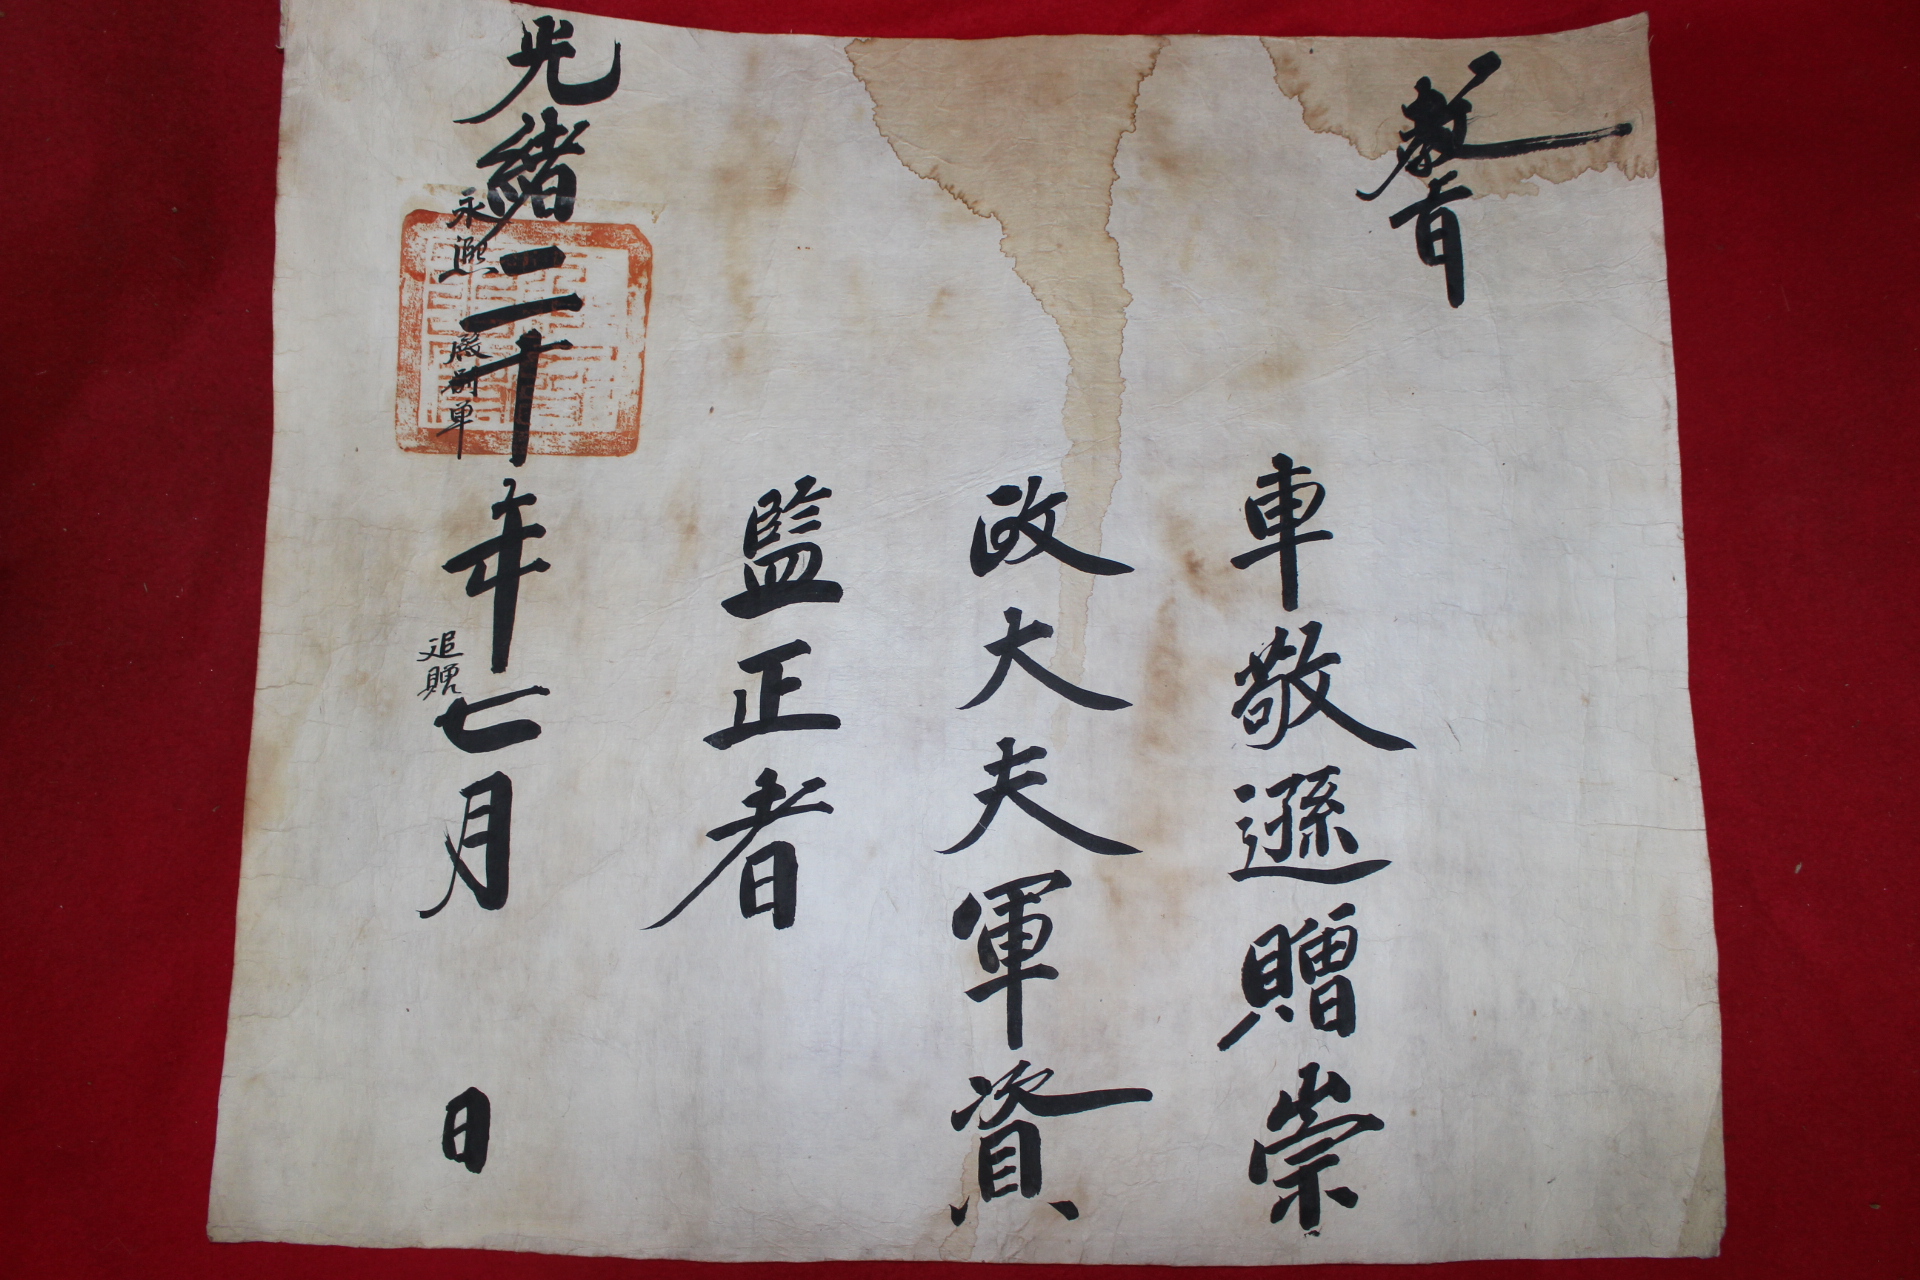 敎旨
車敬遜贈崇
政大夫軍資
監正者
光緖二十年七月 日
永熙殿別單
追贈